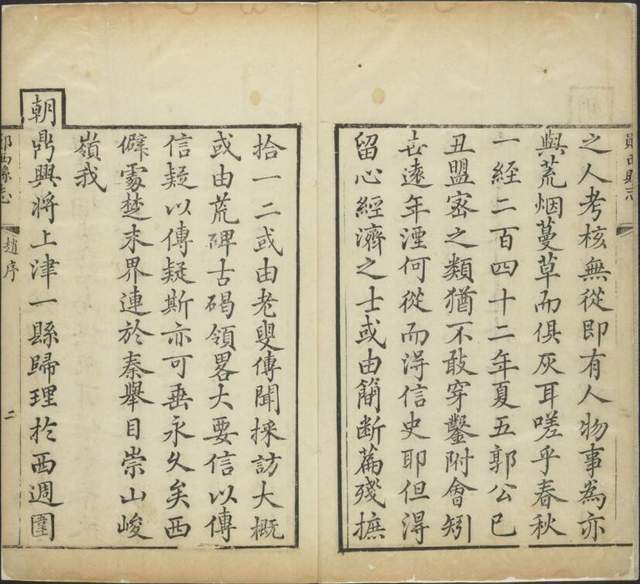 之人考核無從即有人物事為亦
與荒烟蔓草而俱灰耳嗟乎春秋
一經二百四十二年夏五郭公已
丑盟宻之類猶不敢穿鑿附會矧
世遠年湮何從而得信史耶但得
留心經濟之士或由簡斷篇殘摭
拾一二或由老叟傳聞採訪大概
或由荒碑古碣領畧大要信以傳
信疑以傳疑斯亦可垂永久矣西
僻處楚末界連於秦舉目崇山峻
嶺我
朝鼎興將上津一縣歸理於西週圍
鄖西縣志
趙序
二